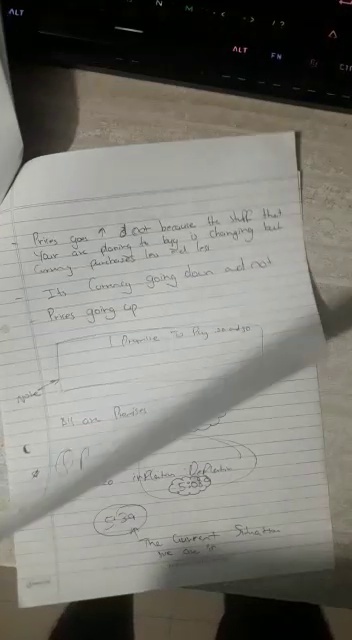 ALT
N
M
< >
ALT
FN
- Prices goes ↑ & not because the stuff that
Your are planing to buy is changing but
Currency purchases less and less
- Its Currency going down and not
- Prices going up
I Promise To Pay so and so
Note
Bill are Promises
Inflation Deflation
5:39
5:39
The Current Situation
we are in